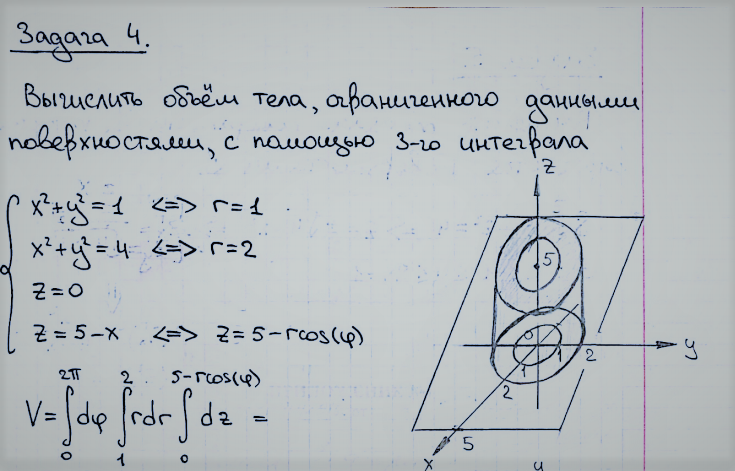 Задача 4.
Вычислить объём тела, ограниченного данными
поверхностями, с помощью 3-го интеграла
x²+y²=1 <=> r=1
x²+y²=4 <=> r=2
z=0
z=5-x <=> z=5-rcos(φ)
2π 2 5-rcos(φ)
V=∫dφ ∫rdr ∫dz =
0 1 0
z
5
0
1
1
2
2
y
5
x